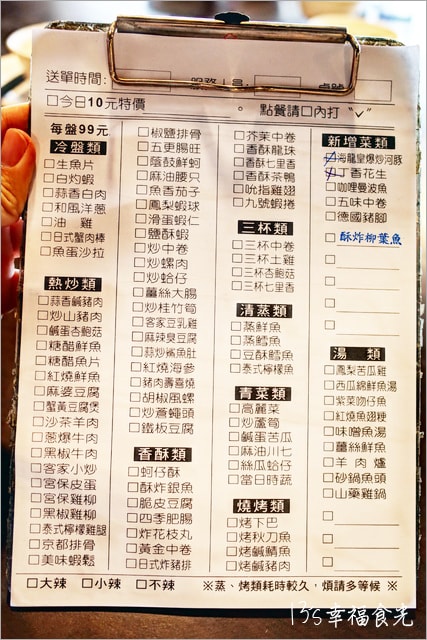 送單時間：
服務人員：
桌號
□今日10元特價
。
點餐請□內打 "✓"
每盤99元
冷盤類
□生魚片
□白灼蝦
□蒜香白肉
□和風洋蔥
□油 雞
□日式蟹肉棒
□魚蛋沙拉
熱炒類
□蒜香鹹豬肉
□炒山豬肉
□鹹蛋杏鮑菇
□糖醋鮮魚
□糖醋魚片
□紅燒鮮魚
□麻婆豆腐
□蟹黃豆腐煲
□沙茶羊肉
□蔥爆牛肉
□黑椒牛肉
□客家小炒
□宮保皮蛋
□宮保雞柳
□黑椒雞柳
□泰式檸檬雞腿
□京都排骨
□美味蝦鬆
□椒鹽排骨
□五更腸旺
□蔭豉鮮蚵
□麻油腰只
□魚香茄子
□鳳梨蝦球
□滑蛋蝦仁
□鹽酥蝦
□炒中卷
□炒螺肉
□炒蛤仔
□薑絲大腸
□炒桂竹筍
□客家豆乳雞
□麻辣臭豆腐
□蒜炒鯊魚肚
□紅燒海參
□豬肉壽喜燒
□胡椒風螺
□炒蒼蠅頭
□鐵板豆腐
香酥類
□蚵仔酥
□酥炸銀魚
□脆皮豆腐
□四季肥腸
□炸花枝丸
□黃金中卷
□日式炸豬排
□芥茉中卷
□香酥龍珠
□香酥七里香
□香酥茶鴨
□吮指雞翅
□九號蝦捲
三杯類
□三杯中卷
□三杯土雞
□三杯杏鮑菇
□三杯七里香
清蒸類
□蒸鮮魚
□蒸鱈魚
□豆酥鱈魚
□泰式檸檬魚
青菜類
□高麗菜
□炒蘆筍
□鹹蛋苦瓜
□麻油川七
□絲瓜蛤仔
□當日時蔬
燒烤類
□烤下巴
□烤秋刀魚
□烤鹹鯖魚
□烤鹹豬肉
新增菜類
□海龍皇爆炒河豚
□丁香花生
□咖哩曼波魚
□五味中卷
□德國豬腳
□酥炸柳葉魚
□
□
□
□
湯 類
□鳳梨苦瓜雞
□西瓜綿鮮魚湯
□紫菜吻仔魚
□紅燒魚翅粳
□味噌魚湯
□薑絲鮮魚
□羊肉爐
□砂鍋魚頭
□山藥雞鍋
□
□
□大辣 □小辣 □不辣 ※蒸、烤類耗時較久，煩請多等候 ※
155幸福食光